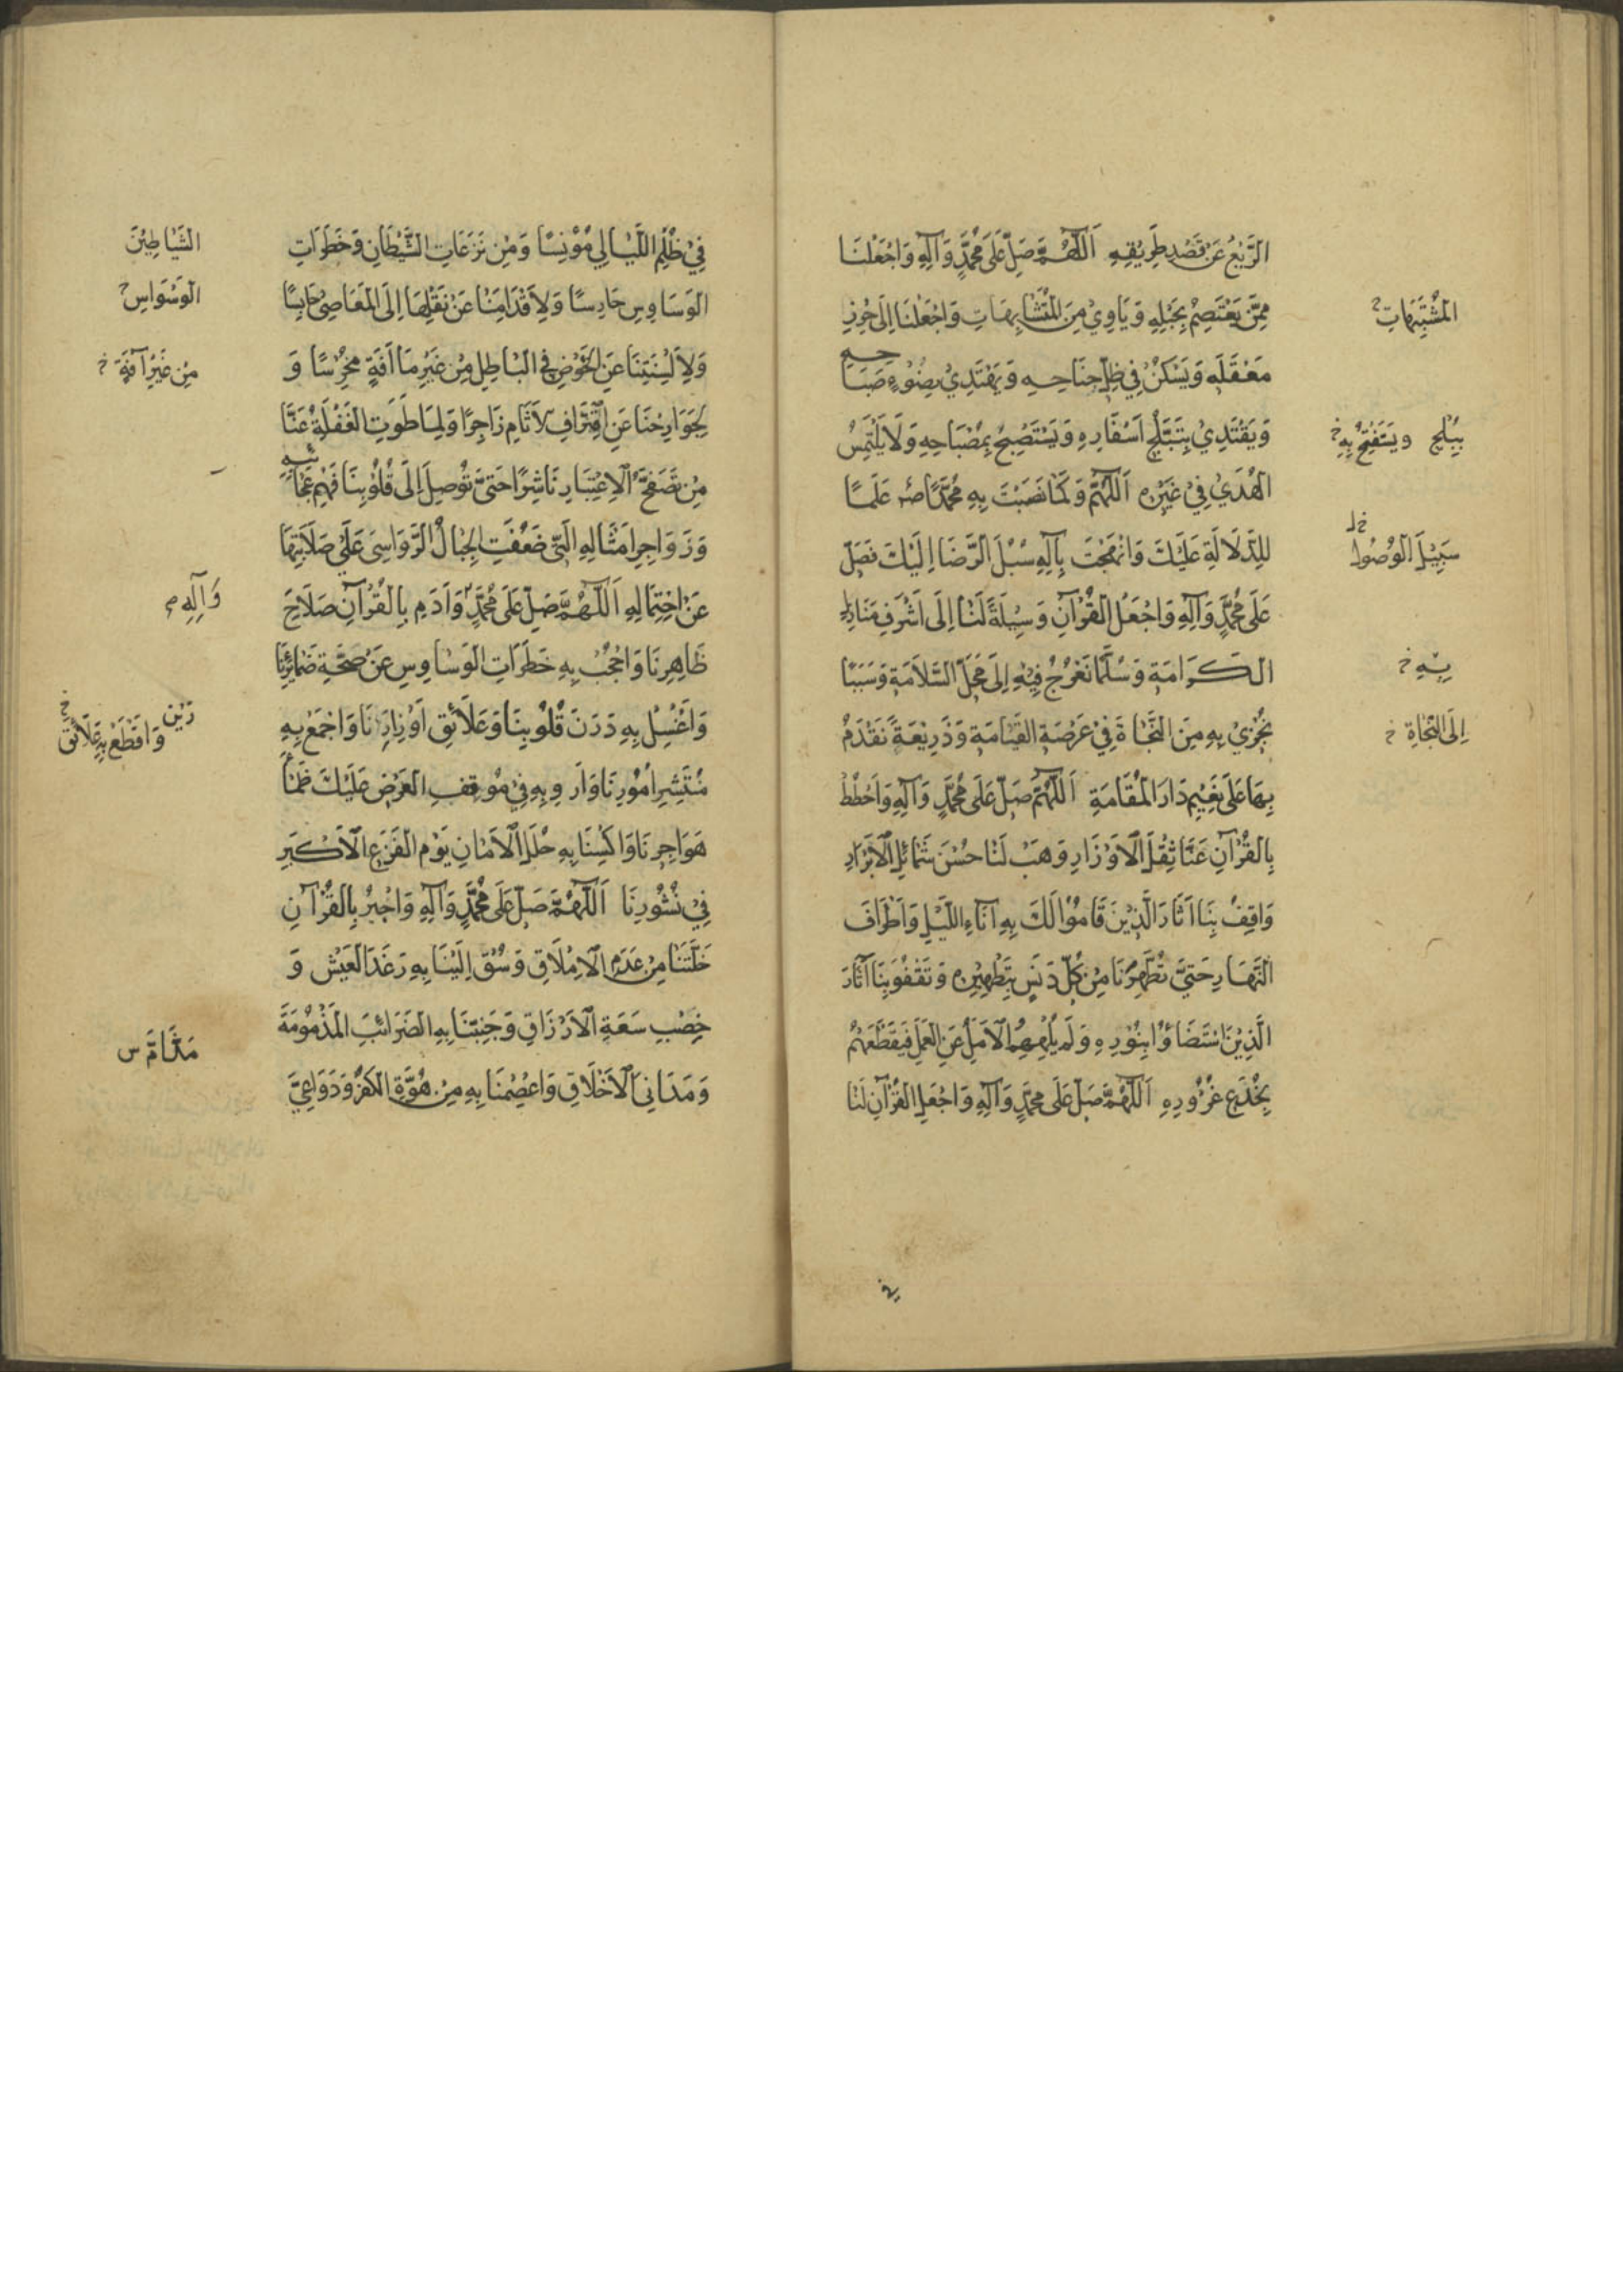 الزَّيْغُ عَنْ قَصْدِ طَرِيْقِهِ اَللّٰهُمَّ صَلِّ عَلَى مُحَمَّدٍ وَآلِهِ وَاجْعَلْنَا
مِمَّنْ يَعْتَصِمُ بِحَبْلِهِ وَيَاوِيْ مِنَ الْمُتَشَابِهَاتِ وَاجْعَلْنَا اِلَى حِرْزِ
المُشْتَبِهَاتِ
مَعْقَلِهِ وَيَسْكُنُ فِي ظِلِّ جَنَاحِهِ وَيَهْتَدِيْ بِضَوْءِ صَبَاحِهِ
وَيَقْتَدِيْ بِتَبَلُّجِ اَسْفَارِهِ وَيَسْتَصْبِحُ بِمِصْبَاحِهِ وَلَا يَلْتَمِسُ
بِبُلْجِ وَيَسْتَفْتِحُ بِهِ خ
الْهُدَيْ فِيْ غَيْرِهِ اَللّٰهُمَّ وَكَمَا نَصَبْتَ بِهِ مُحَمَّدًا ص عَلَمًا
لِلدَّلَالَةِ عَلَيْكَ وَانْهَجْتَ بِآلِهِ سُبُلَ الرِّضَا اِلَيْكَ فَصَلِّ
سَبِيْلَ الوُصُوْلِ خ
عَلَى مُحَمَّدٍ وَآلِهِ وَاجْعَلِ الْقُرْآنَ وَسِيْلَةً لَنَا اِلَى اَشْرَفِ مَنَازِلِ
الكَرَامَةِ وَسُلَّمًا نَعْرُجُ فِيْهِ اِلَى مَحَلِّ السَّلَامَةِ وَسَبَبًا
بِهِ خ
نُجْزَيْ بِهِ مِنَ النَّجَاةَ فِيْ عَرْصَةِ القِيَامَةِ وَذَرِيْعَةً نَقْدَمُ
اِلَى النَّجَاةِ خ
بِهَا عَلَى نَعِيْمِ دَارِ الْمُقَامَةِ اَللّٰهُمَّ صَلِّ عَلَى مُحَمَّدٍ وَآلِهِ وَاحْطُطْ
بِالْقُرْآنِ عَنَّا ثِقْلَ الْاَوْزَارِ وَهَبْ لَنَا حُسْنَ شَمَائِلِ الْاَبْرَارِ
وَاقِفْ بِنَا اَثَارَ الَّذِيْنَ قَامُوْا لَكَ بِهِ آنَاءِ اللَّيْلِ وَاَطْرَافَ
النَّهَارِ حَتَّىٰ تُطَهِّرَنَا مِنْ كُلِّ دَنَسٍ بِتَطْهِيْرِهِ وَتَقْفُوَ بِنَا آثَارَ
الَّذِيْنَ اسْتَضَاؤُا بِنُوْرِهِ وَلَمْ يُلْهِهِمُ الْاَمَلُ عَنِ الْعَمَلِ فَيَقْطَعَهُمْ
بِخُدَعِ غُرُوْرِهِ اَللّٰهُمَّ صَلِّ عَلَى مُحَمَّدٍ وَآلِهِ وَاجْعَلِ الْقُرْآنَ لَنَا
فِيْ
فِيْ ظُلَمِ اللَّيَالِي مُوْنِسًا وَمِنْ نَزَغَاتِ الشَّيْطَانِ وَخَطَرَاتِ
الشَّيَاطِيْنَ
الوَسَاوِسِ حَارِسًا وَلِاَقْدَامِنَا عَنْ نَقْلِهَا اِلَى الْمَعَاصِيْ حَابِسًا
الوَسْوَاسِ
وَلِاَلْسِنَتِنَا عَنِ الخَوْضِ فِي الْبَاطِلِ مِنْ غَيْرِ مَا اَفَةٍ مُخْرِسًا وَ
مِنْ غَيْرِ آفَةٍ خ
لِجَوَارِحِنَا عَنِ اقْتِرَافِ لَاَثَامِ زَاجِرًا وَلِمَا طَوَتِ الغَفْلَةُ عَنَّا
مِنْ تَصَفُّحِ الْاِعْتِبَارِ نَاشِرًا حَتَّىٰ تُوْصِلَ اِلَى قُلُوْبِنَا فَهْمَ عَجَائِبِهِ
وَزَوَاجِرِ اَمْثَالِهِ الَّتِيْ ضَعُفَتِ الْجِبَالُ الرَّوَاسِيَ عَلَيْ صَلَابَتِهَا
عَنْ احْتِمَالِهِ اَللّٰهُمَّ صَلِّ عَلَى مُحَمَّدٍ وَاَدِمْ بِالْقُرْآنِ صَلَاحَ
وَآلِهِ
ظَاهِرِنَا وَاحْجُبْ بِهِ خَطَرَاتِ الوَسَاوِسِ عَنْ صِحَّةِ ضَمَائِرِنَا
وَاغْسِلْ بِهِ دَرَنَ قُلُوْبِنَا وَعَلَائِقَ اَوْزَارِنَا وَاجْمَعْ بِهِ
رَيْنَ وَاقْطَعْ بِهِ عَلَائِقَ خ
مُنْتَشِرَ اُمُوْرِنَا وَاَرْوِ بِهِ فِيْ مَوْقِفِ العَرْضِ عَلَيْكَ ظَمَأَ
هَوَاجِرِنَا وَاكْسِنَا بِهِ حُلَلَ الْاَمَانِ يَوْمِ الفَزَعِ الْاَكْبَرِ
فِيْ نُشُوْرِنَا اَللّٰهُمَّ صَلِّ عَلَى مُحَمَّدٍ وَآلِهِ وَاجْبُرْ بِالْقُرْآنِ
خَلَّتَنَا مِنْ عَدَمِ الْاِمْلَاقِ وَسُقْ اِلَيْنَا بِهِ رَغَدَ العَيْشِ وَ
خِصْبِ سَعَةِ الْاَرْزَاقِ وَجَنِّبْنَا بِهِ الضَرَائِبَ المَذْمُوْمَةَ
مَذَامَّ س
وَمَدَانِيَ الْاَخْلَاقِ وَاعْصِمْنَا بِهِ مِنْ هُوَّةِ الكُفْرِ وَدَوَاعِيَ